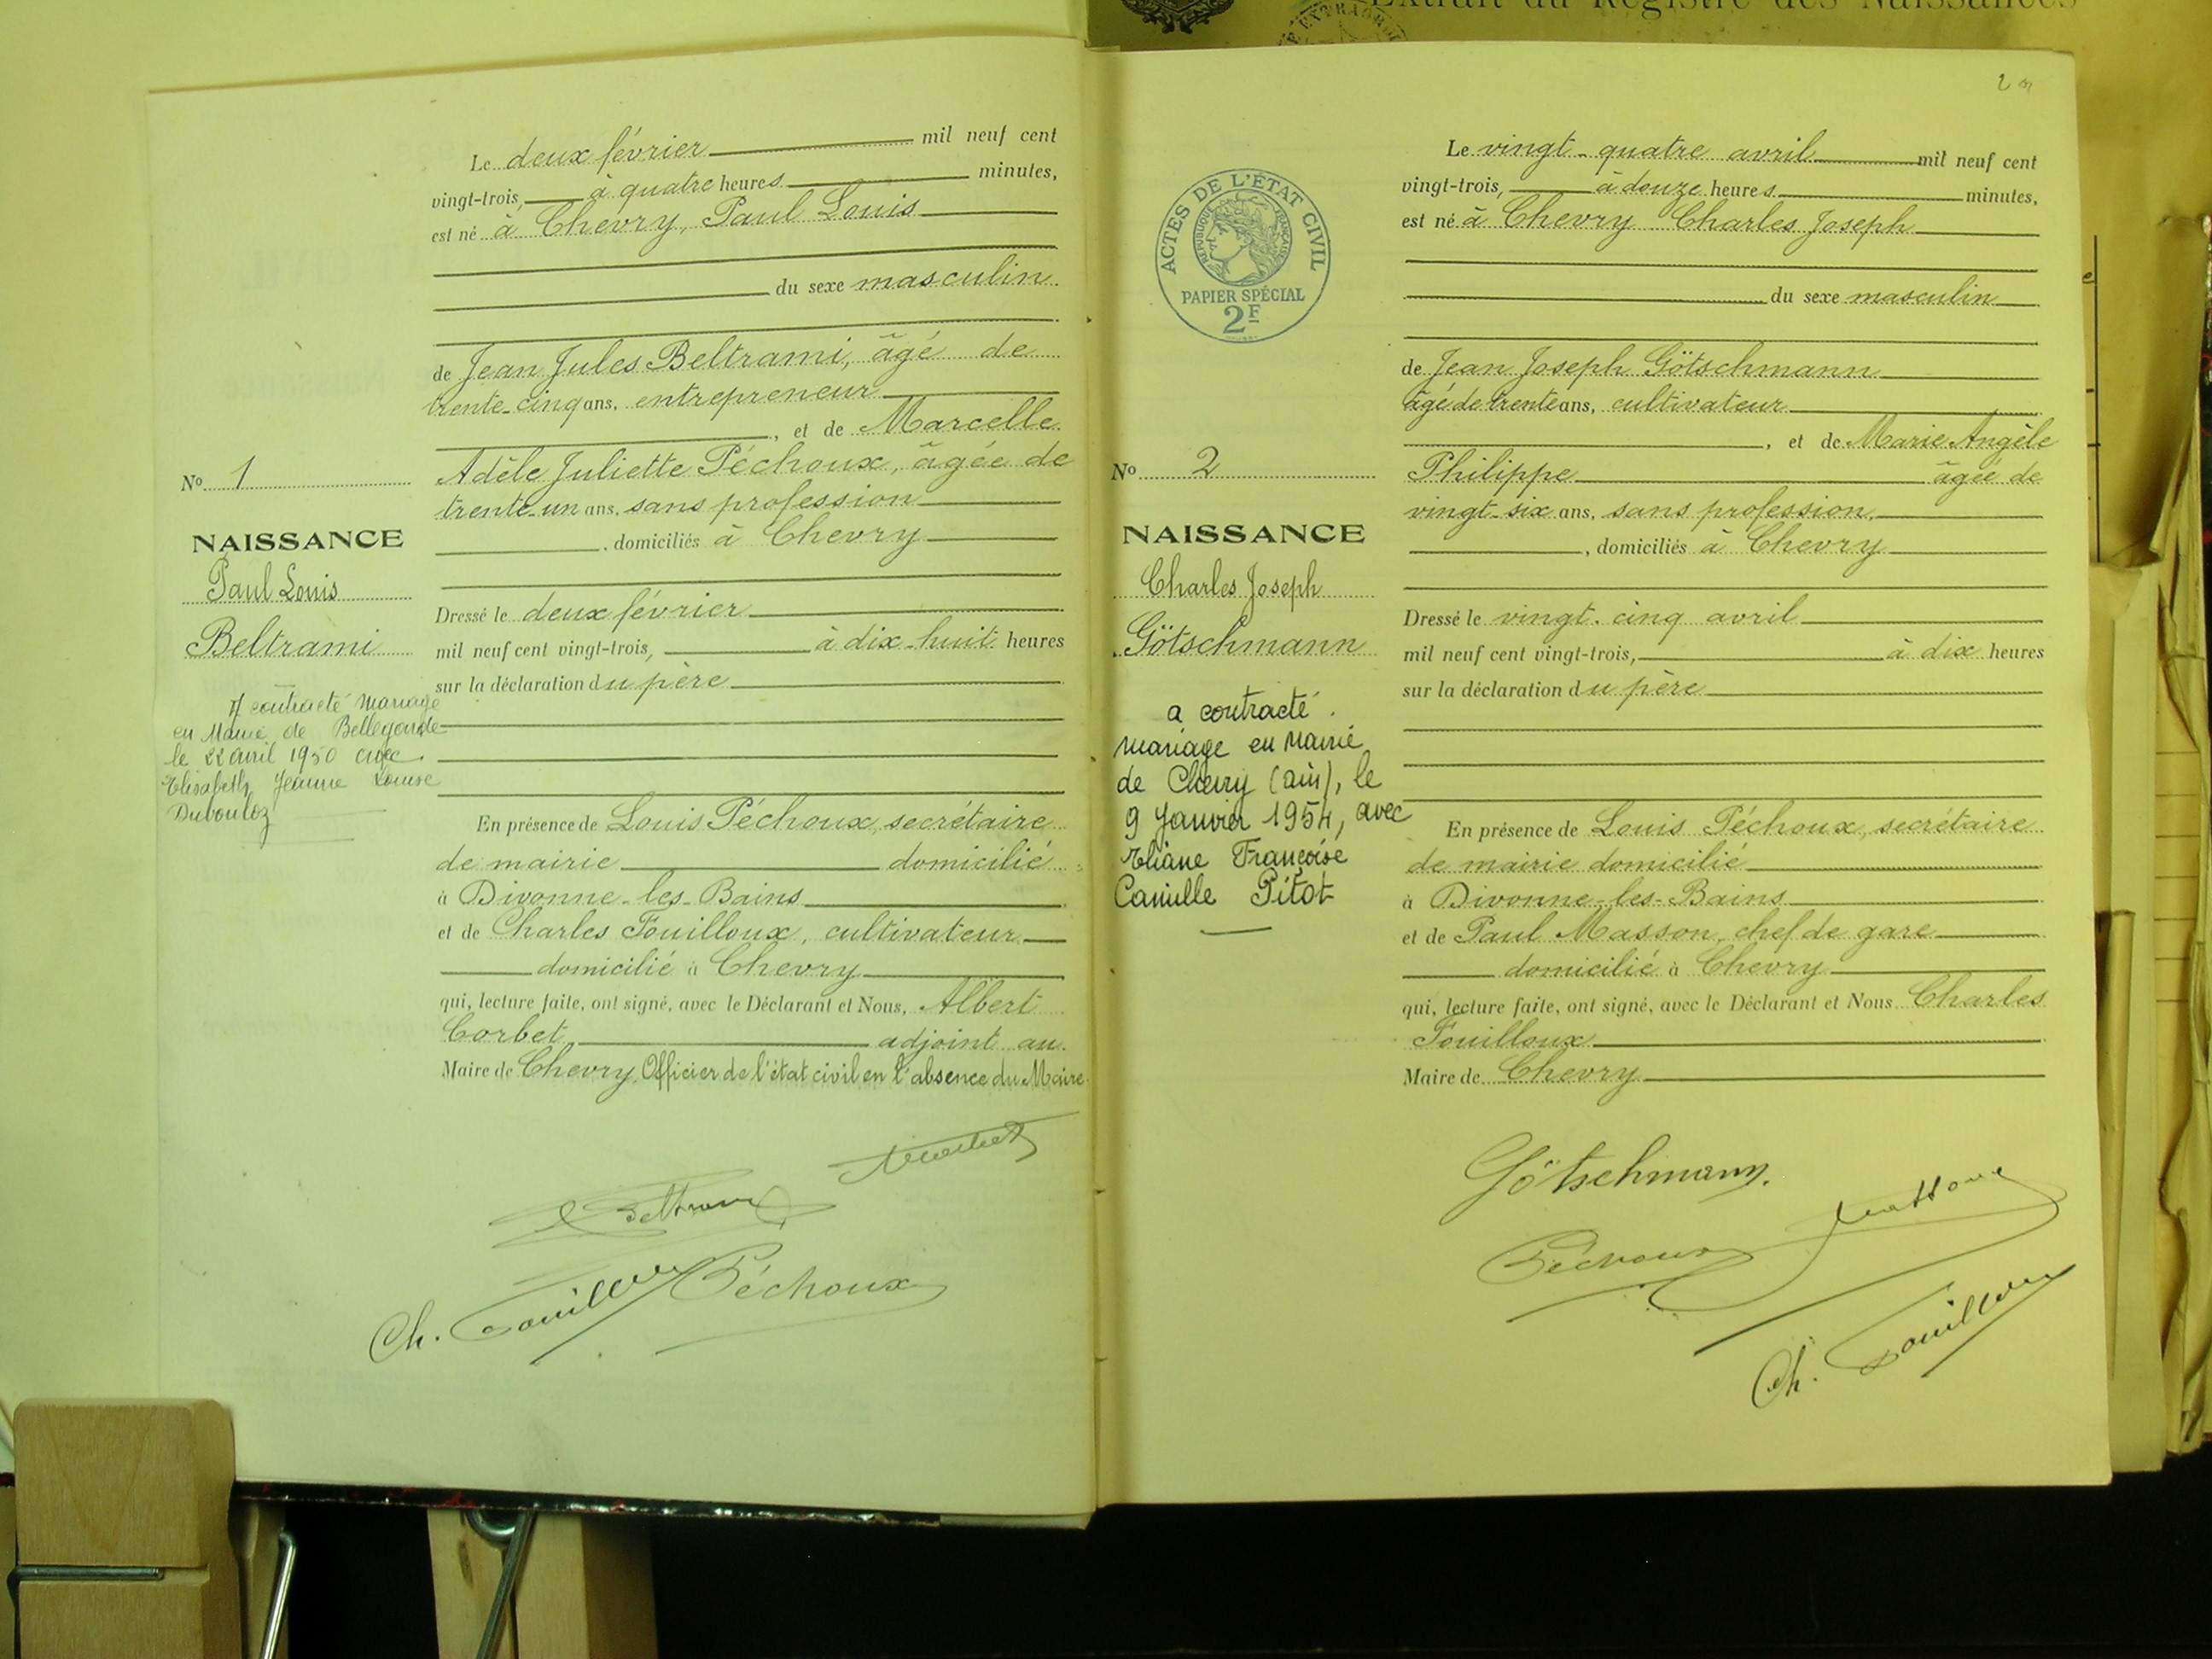 Extrait du Registre des Naissances
Le deux février mil neuf cent
vingt-trois, à quatre heures minutes,
est né à Chevry, Paul Louis
du sexe masculin
de Jean Jules Beltrami, âgé de
trente-cinq ans, entrepreneur
, et de Marcelle
Adèle Juliette Péchoux, âgée de
trente-un ans, sans profession
, domiciliés à Chevry
Dressé le deux février
mil neuf cent vingt-trois, à dix-huit heures
sur la déclaration du père
En présence de Louis Péchoux, secrétaire
de mairie domicilié
à Divonne-les-Bains
et de Charles Fouilloux, cultivateur
domicilié à Chevry
qui, lecture faite, ont signé, avec le Déclarant et Nous, Albert
Corbet, adjoint au
Maire de Chevry, Officier de l'état civil en l'absence du Maire
No 1
NAISSANCE
Paul Louis
Beltrami
A contracté mariage
en Mairie de Bellegarde
le 22 avril 1950 avec
Elisabeth Jeanne Louise
Duboulóz
Beltrami
Ch. Fouilloux
Péchoux
ACTES DE L'ÉTAT CIVIL
RÉPUBLIQUE FRANÇAISE
PAPIER SPÉCIAL
2F
No 2
NAISSANCE
Charles Joseph
Götschmann
a contracté
mariage en Mairie
de Chevry (ain), le
9 Janvier 1954, avec
Eliane Françoise
Camille Pitot
Le vingt-quatre avril mil neuf cent
vingt-trois, à douze heures minutes,
est né à Chevry Charles Joseph
du sexe masculin
de Jean Joseph Götschmann
âgé de trente ans, cultivateur
, et de Marie Angèle
Philippe âgée de
vingt-six ans, sans profession,
, domiciliés à Chevry
Dressé le vingt-cinq avril
mil neuf cent vingt-trois, à dix heures
sur la déclaration du père
En présence de Louis Péchoux, secrétaire
de mairie domicilié
à Divonne-les-Bains
et de Paul Masson, chef de gare
domicilié à Chevry
qui, lecture faite, ont signé, avec le Déclarant et Nous Charles
Fouilloux
Maire de Chevry
Götschmann.
Masson
Péchoux
Ch. Fouilloux